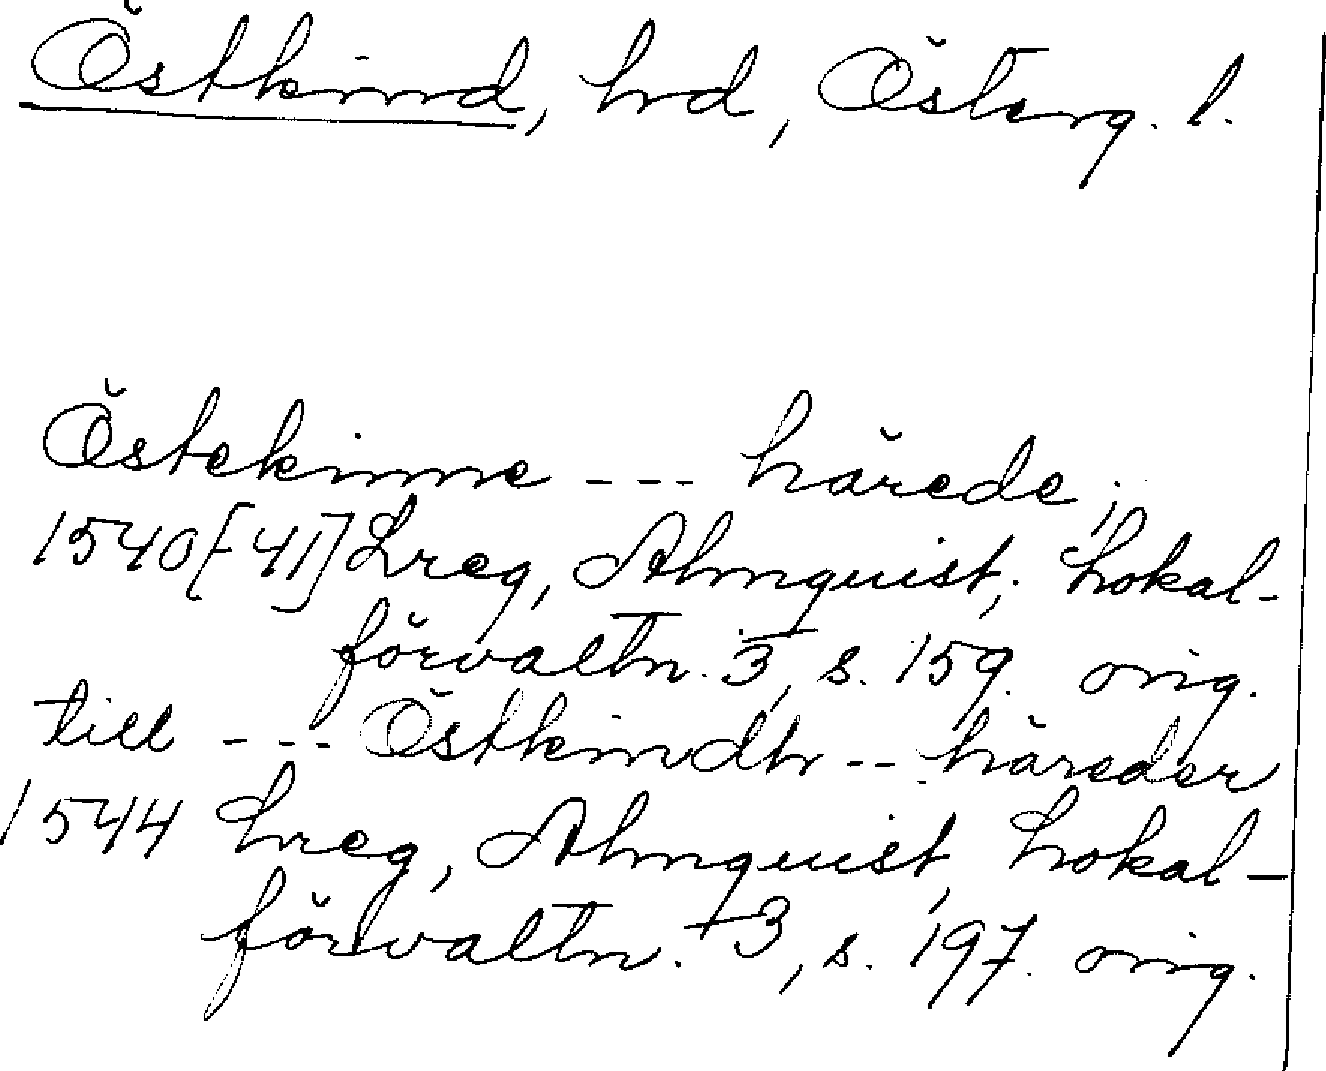 Östkind, hrd, Österg. l.
Östekinne --- härede,
1540[-41] Lreg, Almquist, Lokal-
förvaltn. 3, s. 159. orig.
till --- Östkindh -- häreder
1544 Lreg, Almquist, Lokal-
förvaltn. 3, s. 197. orig.